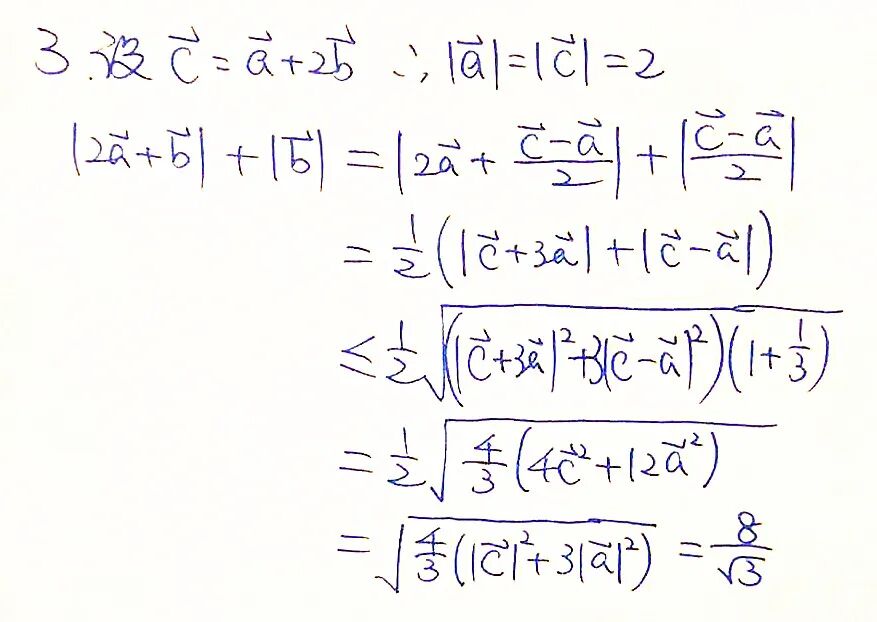 3. 设 $\vec{c}=\vec{a}+2\vec{b}$ ∴ $|\vec{a}|=|\vec{c}|=2$
$|2\vec{a}+\vec{b}|+|\vec{b}|=\left|2\vec{a}+\frac{\vec{c}-\vec{a}}{2}\right|+\left|\frac{\vec{c}-\vec{a}}{2}\right|$
$=\frac{1}{2}(|\vec{c}+3\vec{a}|+|\vec{c}-\vec{a}|)$
$\leq\frac{1}{2}\sqrt{(|\vec{c}+3\vec{a}|^2+3|\vec{c}-\vec{a}|^2)(1+\frac{1}{3})}$
$=\frac{1}{2}\sqrt{\frac{4}{3}(4\vec{c}^2+12\vec{a}^2)}$
$=\sqrt{\frac{4}{3}(|\vec{c}|^2+3|\vec{a}|^2)}=\frac{8}{\sqrt{3}}$